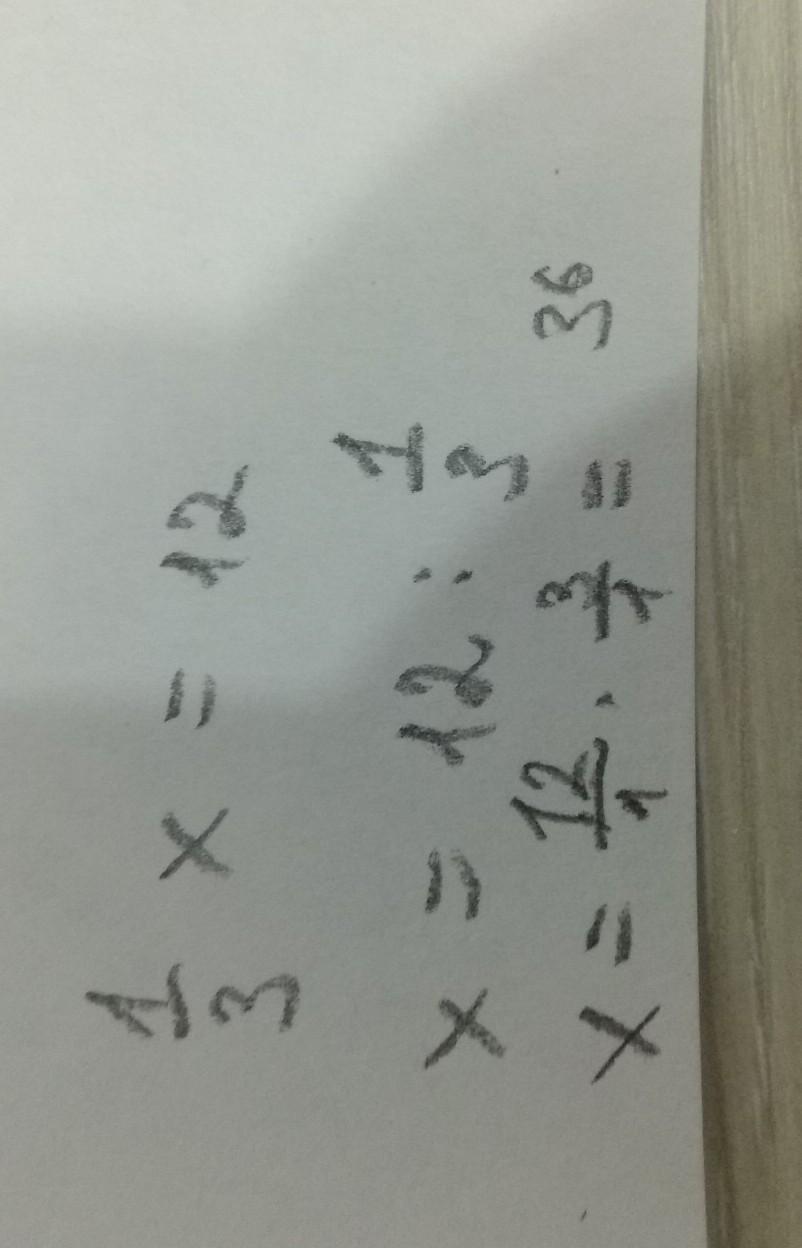 1/3 x = 12
x = 12 : 1/3
x = 12/1 · 3/1 = 36